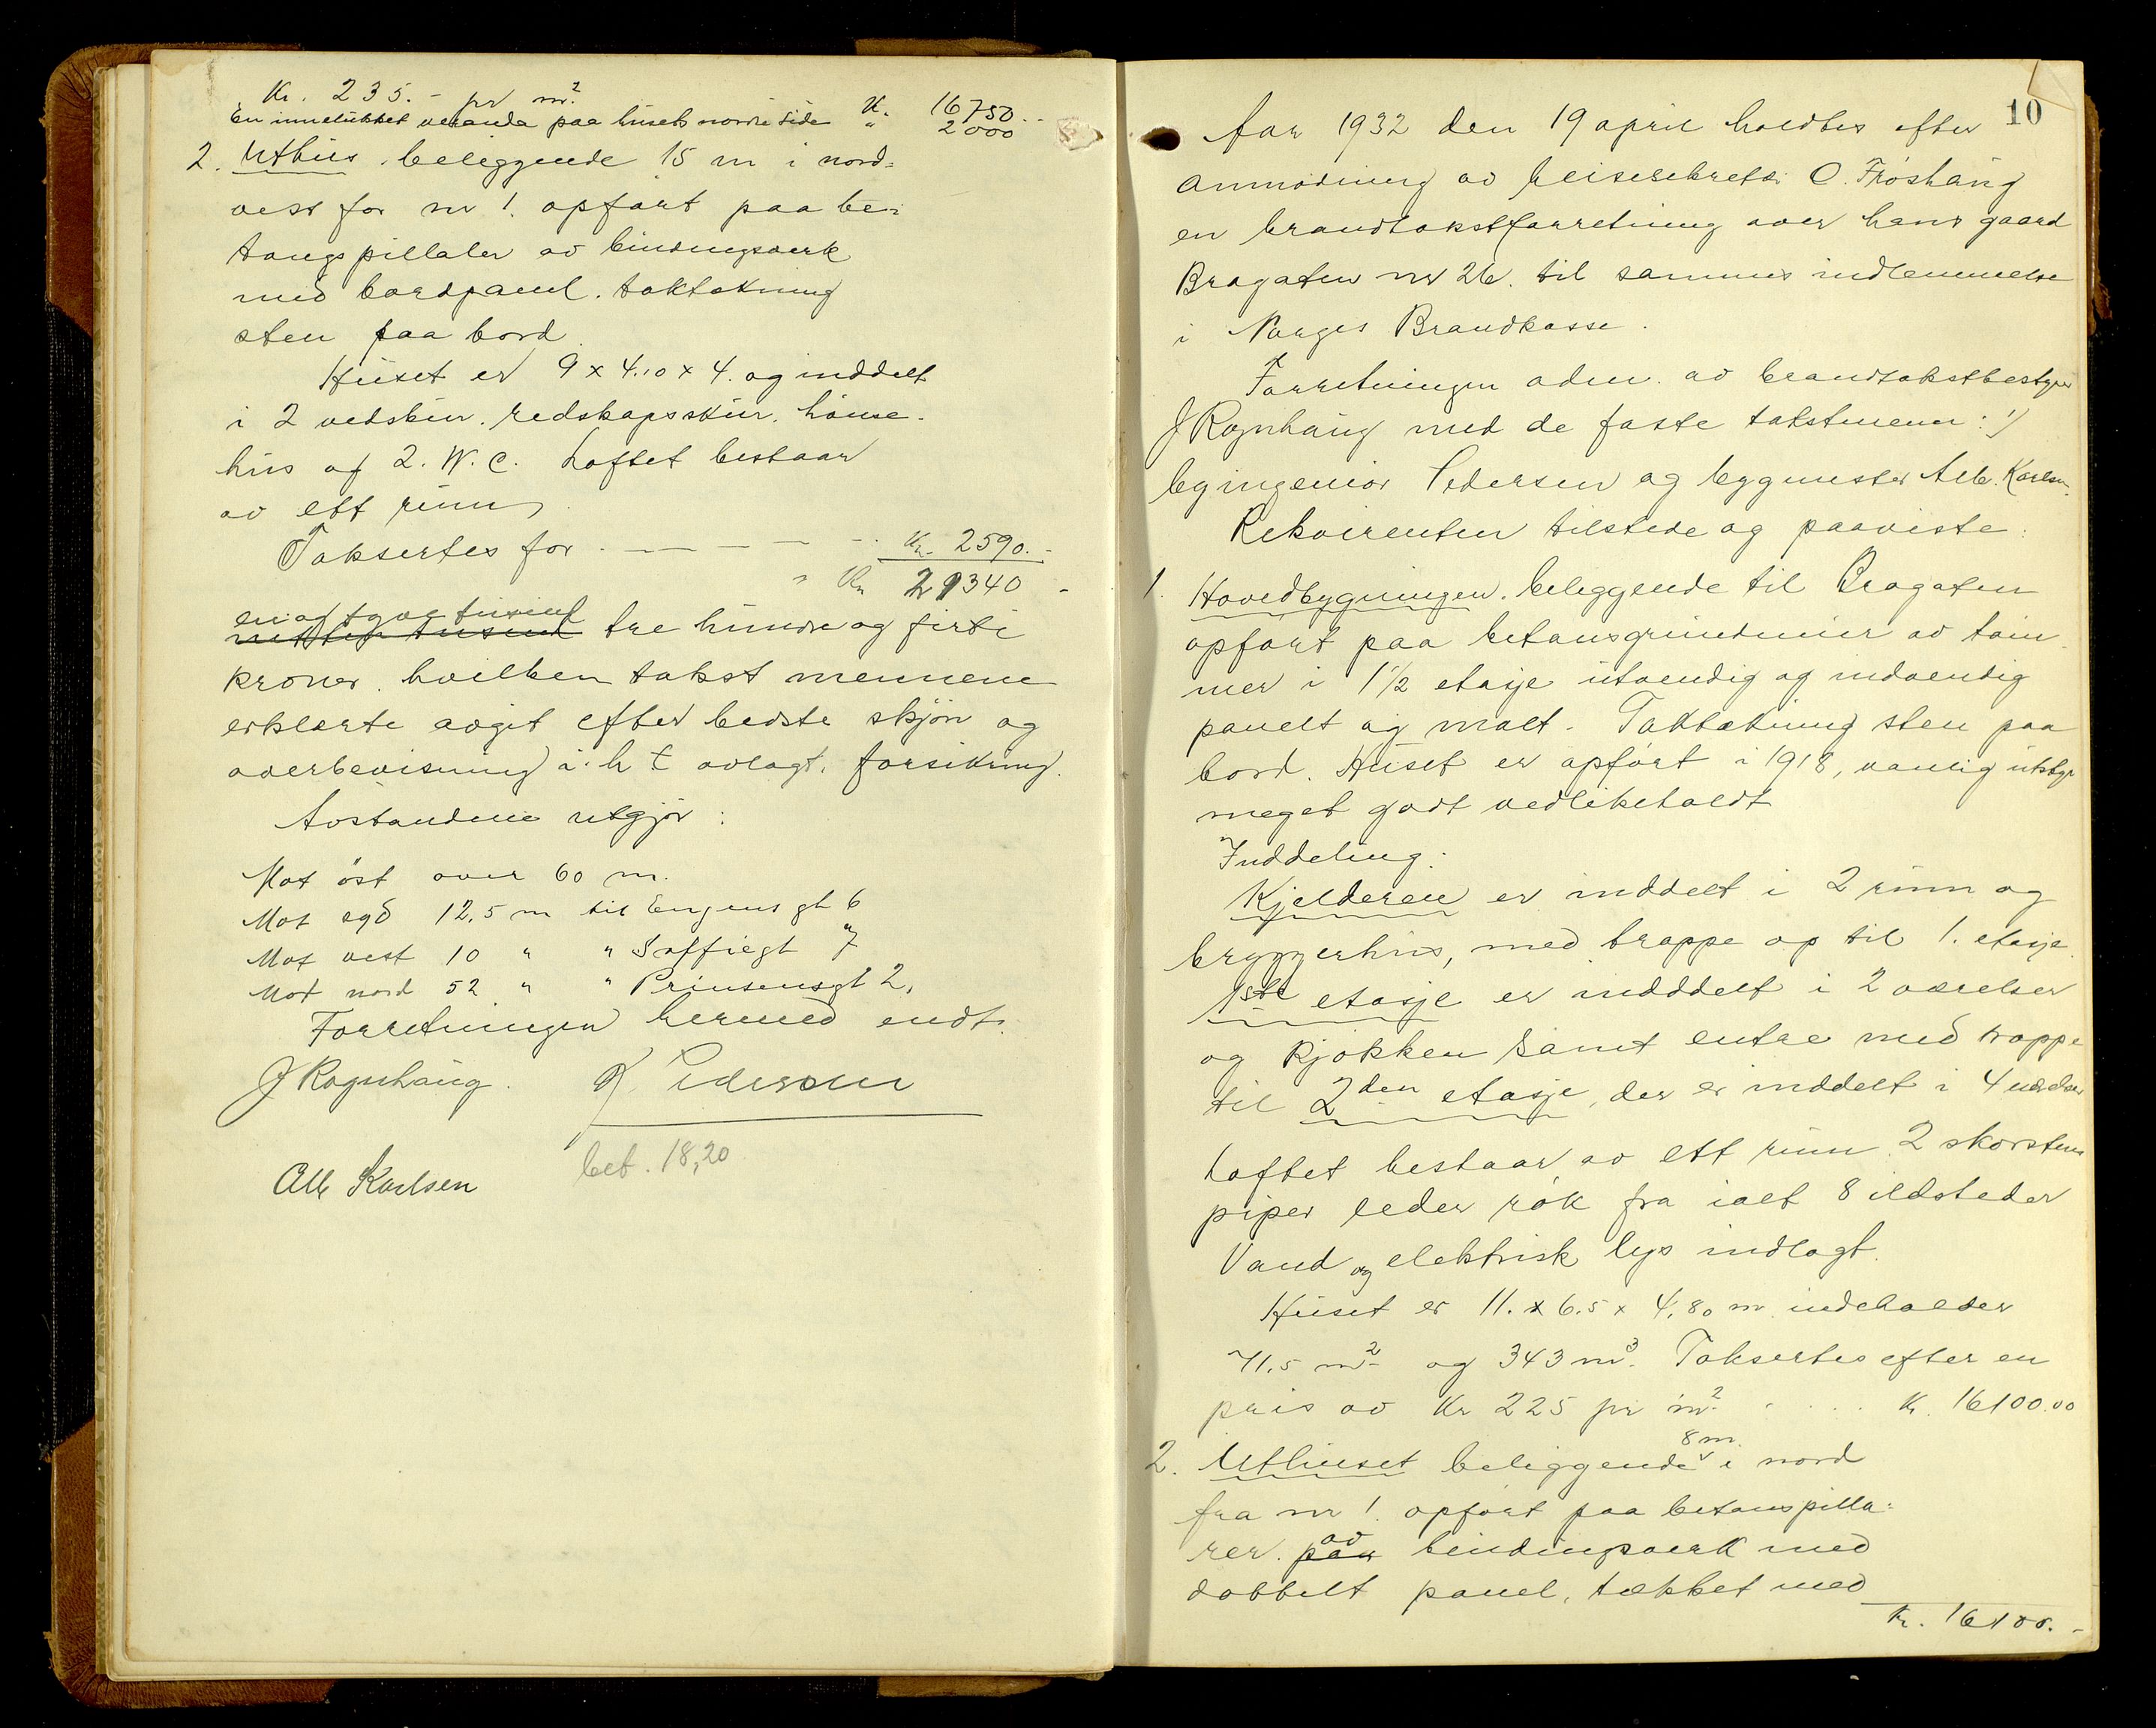 Kr. 235.- pr m².
En innelukket veranda paa husets nordre side Kr. 16750.-
" 2000
2. Uthus. beliggende 15 m i nord-
vest for nr 1. opført paa be-
tongpillaler av bindingsverk
med bordpanel. taktekning
sten paa bord.
Huset er 9 x 4.10 x 4. og inddelt
i 2 vedskur. redskapsskur. hønse-
hus og 2. W.C. Loftet bestaar
av ett rum
Taksertes for - - - - - Kr. 2590.-
Kr 21340 -
en og tyve tusind
nitten tusind tre hundre og firti
kroner. hvilken takst mennene
erklærte avgit efter bedste skjøn og
overbevisning i h t avlagt. forsikring.
Avstandene utgjør:
Mot øst over 60 m.
Mot syd 12.5 m til Engens gt 6
Mot vest 10 " " Soffiegt 7
Mot nord 52 " " Prinsensgt 2,
Forretningen hermed endt.
J Rognhaug. K Pedersen
Alb Karlsen bet. 18,20
10
Aar 1932 den 19 april holdtes efter
anmodning av reisesekretær O. Frøshaug
en brandtakstforretning over hans gaard
Bragaten nr 26. til sammes indlemmelse
i Norges Brandkasse.
Forretningen adm. av brandtakstbestyrer
J Rognhaug med de faste takstmenn:
byingeniør Pedersen og bygmester Alb. Karlsen.
Rekvirenten tilstede og paaviste:
1. Hovedbygningen. beliggende til Bragaten
opført paa betongrundmur av tøm-
mer i 1 1/2 etasje utvendig og indvendig
panelt og malt. Taktækning sten paa
bord. Huset er opført i 1918, vanlig utstyr
meget godt vedlikeholdt
Inddeling:
Kjelderen er inddelt i 2 rum og
bryggerhus, med trappe op til 1. etasje.
1ste etasje er indddelt i 2 værelser
og kjøkken samt entre med trappe
til 2den etasje, der er inddelt i 4 værelser
Loftet bestaar av ett rum 2 skorstens
piper leder røk fra ialt 8 ildsteder
Vand og elektrisk lys indlagt.
Huset er 11. x 6.5 x 4.80 m indeholder
71.5 m² og 343 m³. Taksertes efter en
pris av Kr 225 pr m² . . . . Kr. 16100.00
8 m
2. Uthuset beliggende i nord
fra nr 1. opført paa betonspilla-
rer. paa av bindingsverk med
dobbelt panel, tækket med
Kr. 16100.-